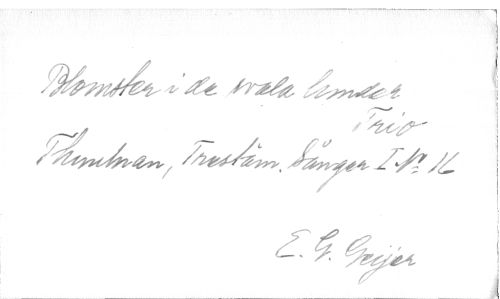 Blomster i de svala lunder
Trio
Thunman, Trestäm. Sånger I Nr. 16
E. G. Geijer